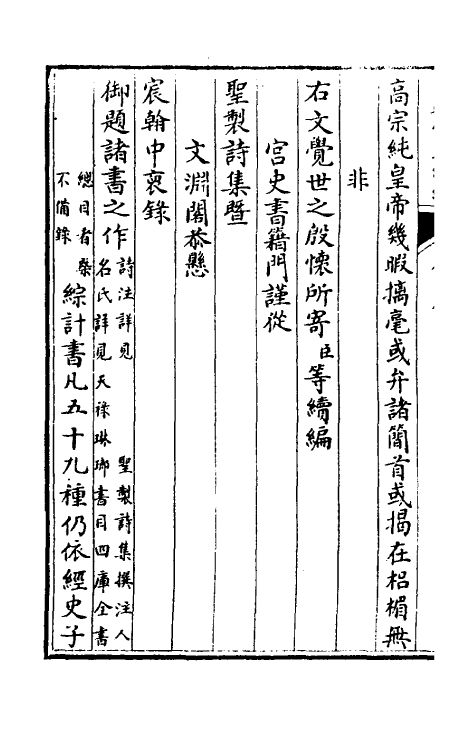 高宗純皇帝幾暇摛毫或弁諸簡首或揭在梠楣無
非
右文覺世之殷懷所寄臣等續編
宮史書籍門謹從
聖製詩集暨
文淵閣恭懸
宸翰中裒錄
御題諸書之作詩注詳見聖製詩集撰注人
名氏詳見天祿琳瑯書目四庫全書
緫目者槩
不備錄
綜計書凡五十九種仍依經史子